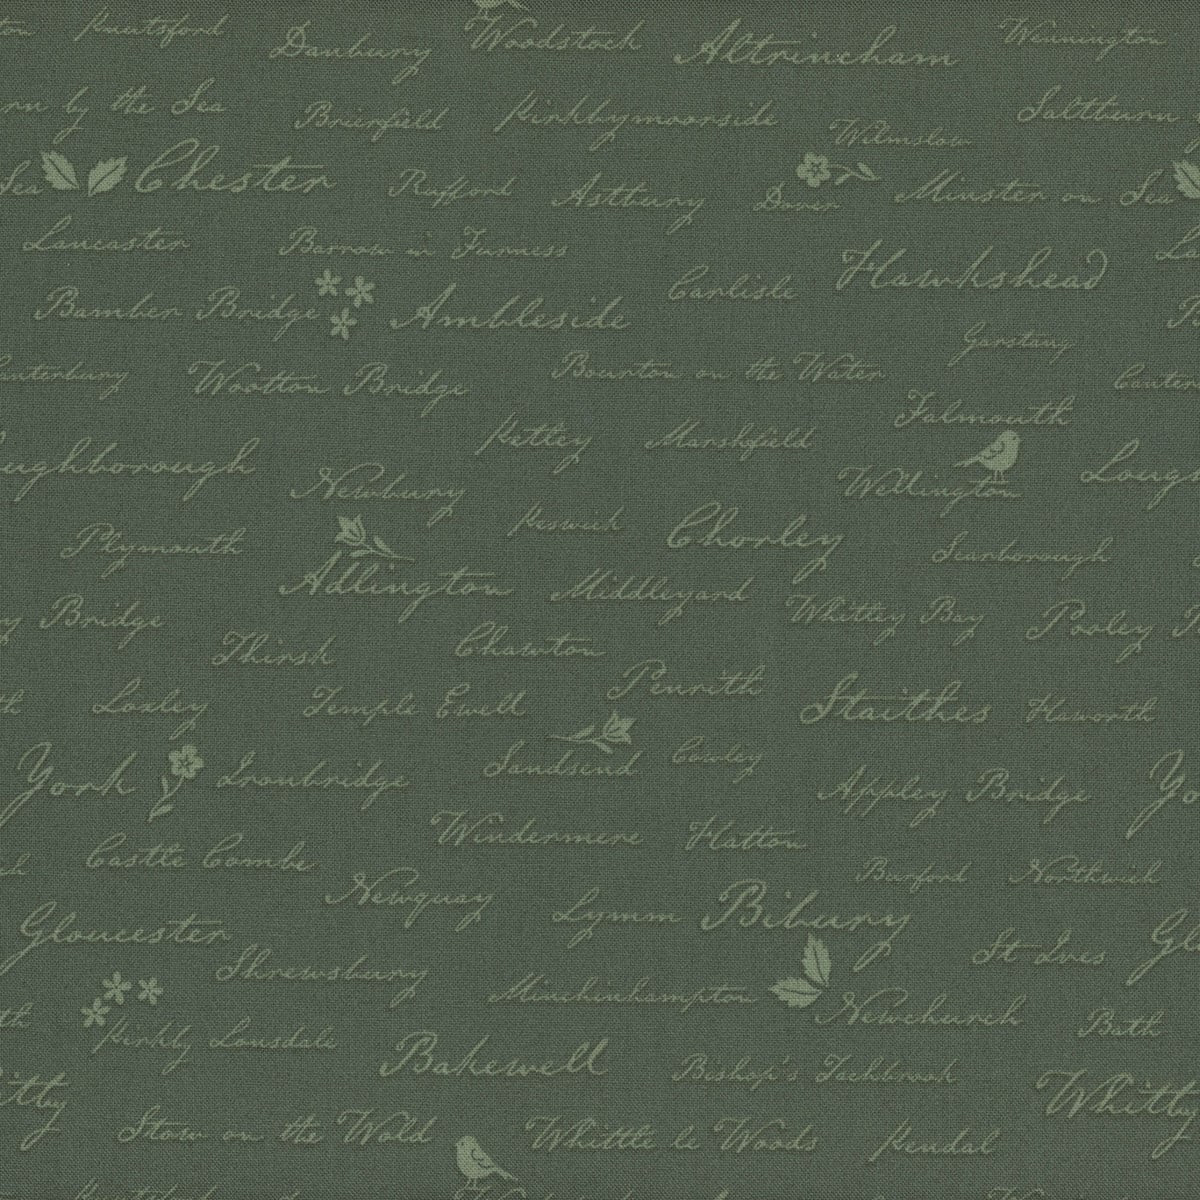 Knutsford
Danbury
Woodstock
Altrincham
Winnington
rn by the Sea
Brierfield
Kirkbymoorside
Wilmslow
Saltburn
Sea
Chester
Rufford
Astbury
Dover
Minster on Sea
Lancaster
Barrow in Furness
Carlisle
Hawkshead
Bamber Bridge
Ambleside
Garstang
anterbury
Wootton Bridge
Bourton on the Water
Canter
Falmouth
Ketley
Marshfield
oughborough
Newbury
Wellington
Lough
Keswick
Chorley
Plymouth
Scarborough
Adlington
Middleyard
Whitley Bay
y Bridge
Pooley
Thirsk
Chawton
Penrith
Loxley
Temple Ewell
Staithes
Haworth
York
Ironbridge
Sandsend
Cowley
Appley Bridge
Yo
Windermere
Hatton
Castle Combe
Burford
Northwich
Newquay
Lymm
Bibury
Gloucester
St Ives
Gl
Shrewsbury
Minchinhampton
Newchurch
Bath
Kirkby Lonsdale
Bakewell
Bishop's Tachbrook
itby
Whitby
Stow on the Wold
Whittle le Woods
Kendal